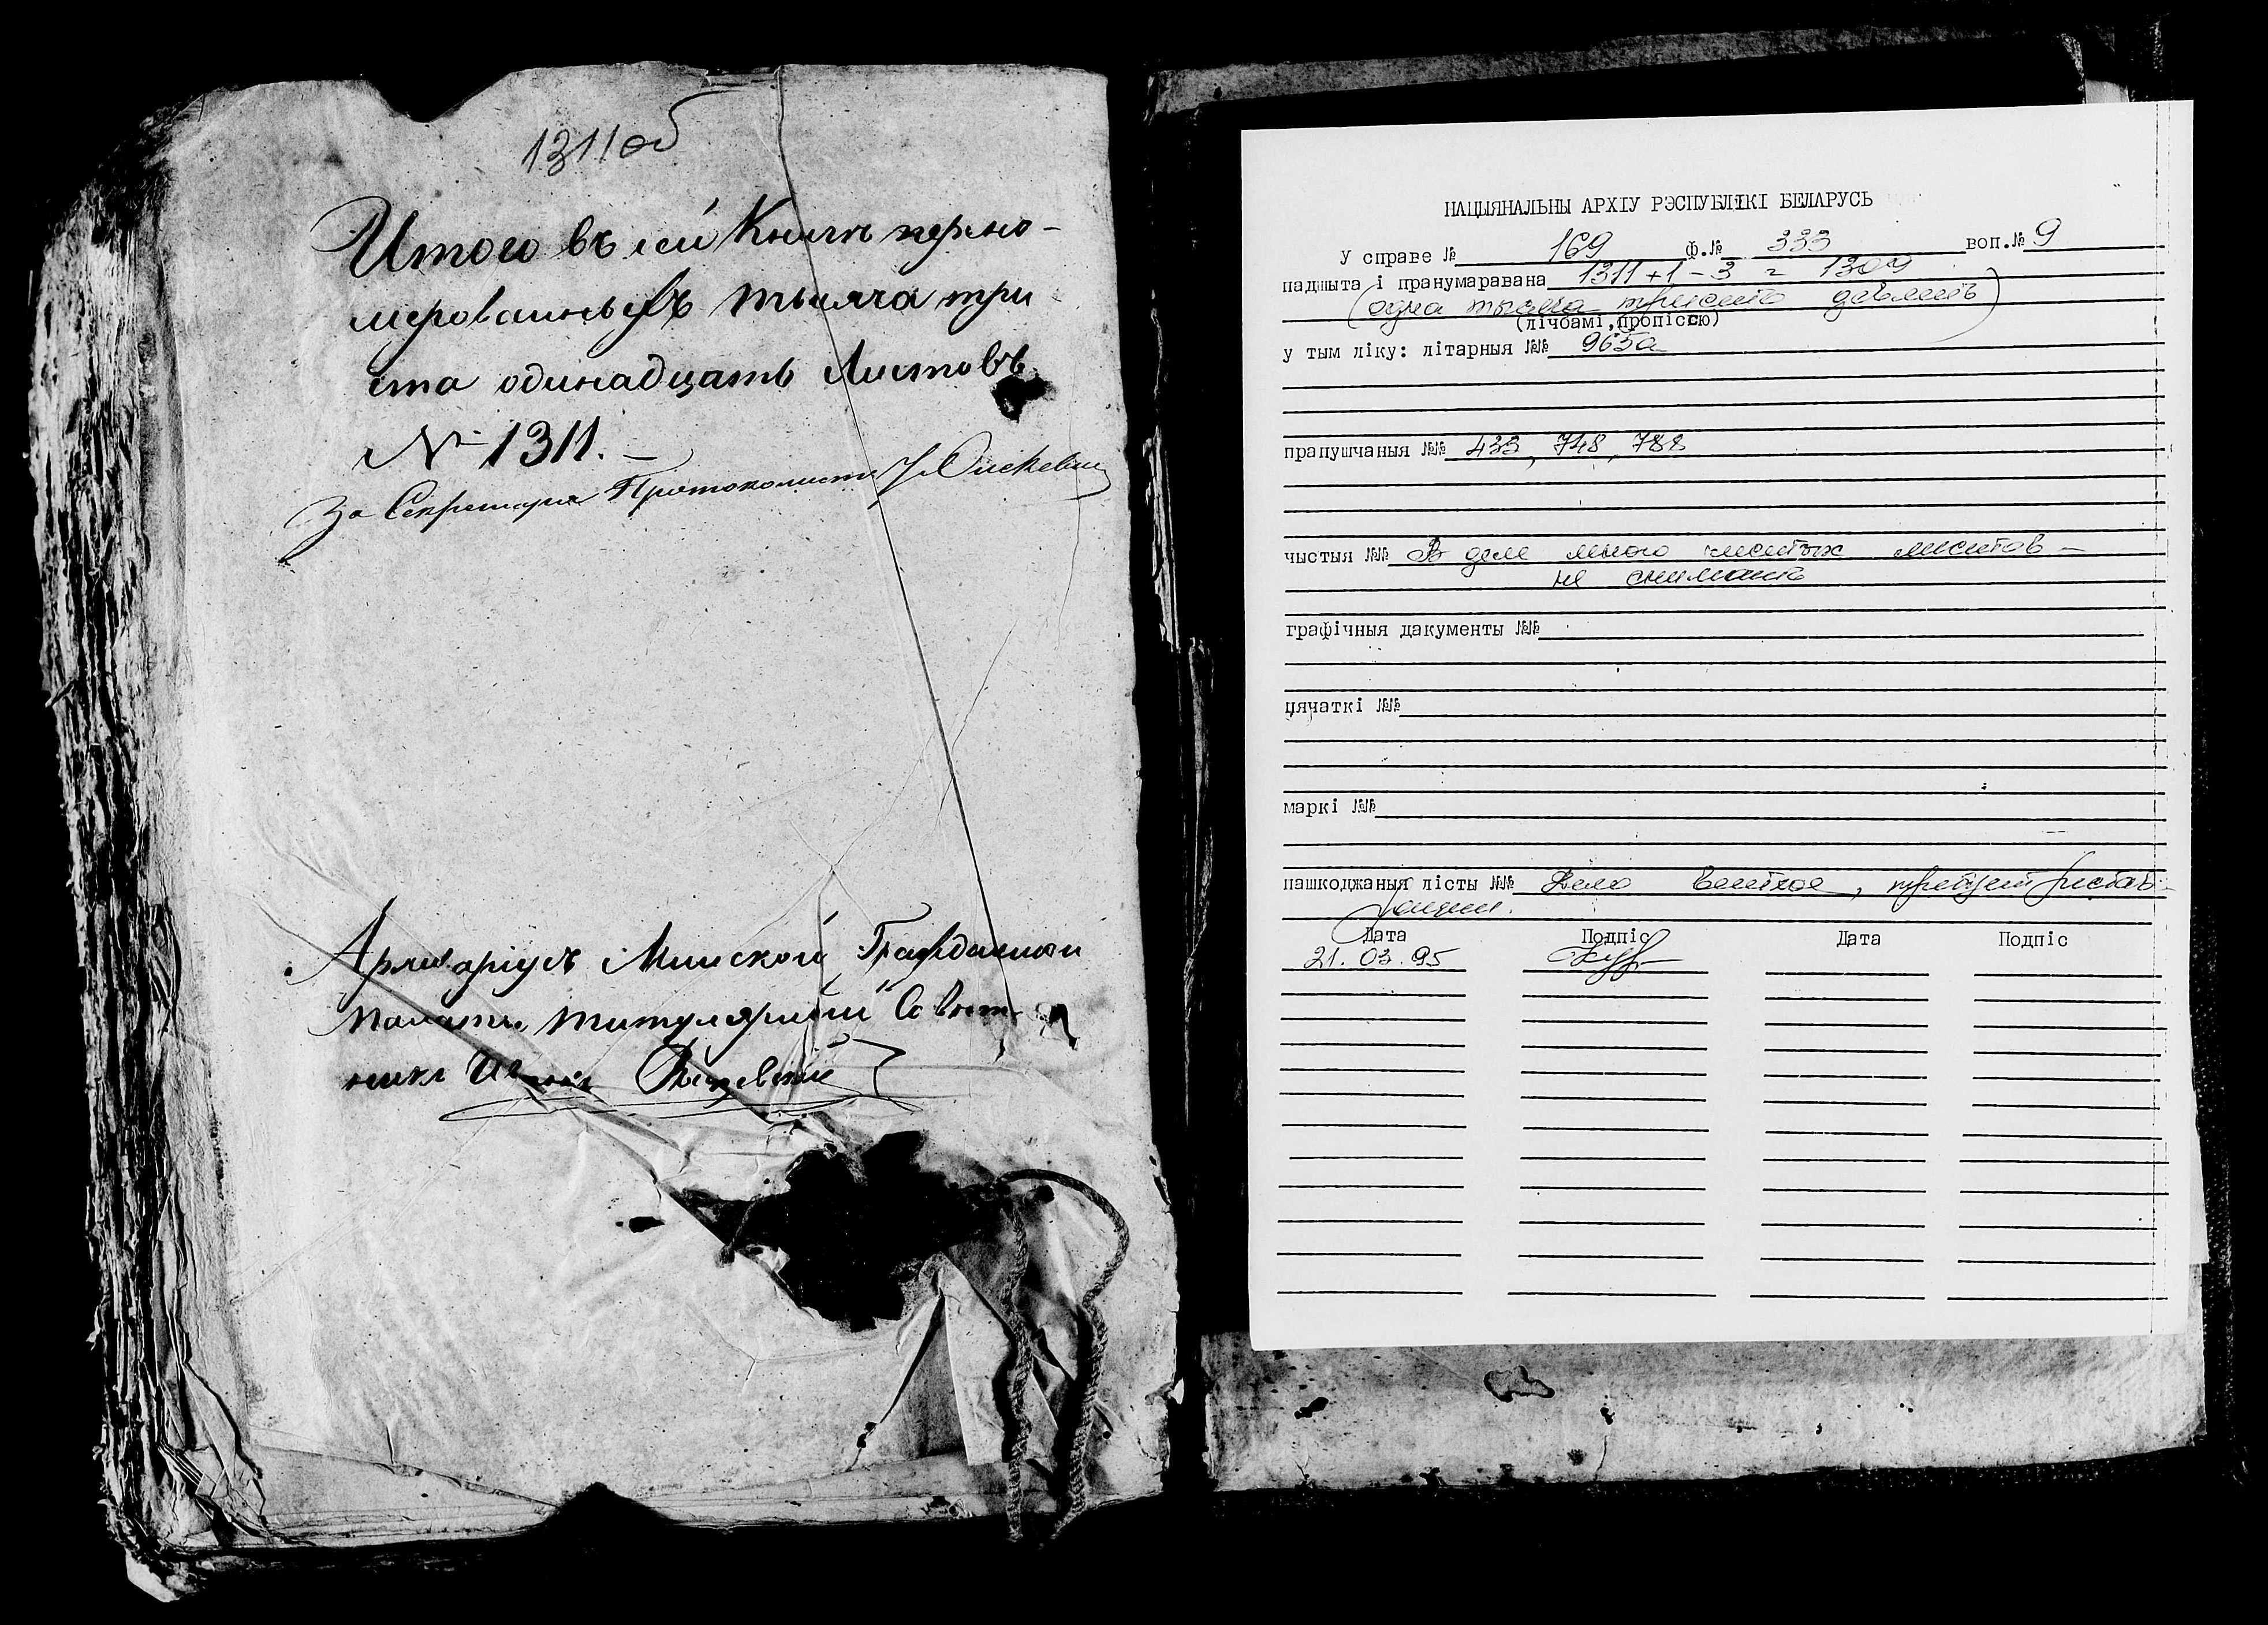 1311об
Итого въ сей Книге перено-
мерованныхъ тысяча три
ста одинадцать Листовъ
№ 1311. –
За Секретаря Протоколистъ
Архиваріусъ Минской Гражданской
Палаты, титулярный Совет-
никъ
НАЦЫЯНАЛЬНЫ АРХІУ РЭСПУБЛІКІ БЕЛАРУСЬ
У справе № 169 Ф.№ 333 воп.№ 9
падшыта і пранумаравана 1311 + 1 - 3 = 1309
(одна тысяча триста девять)
(лічбамі, пропіссю)
у тым ліку: літарныя №№ 965а
прапушчаныя №№ 433, 748, 788
чыстыя №№ В деле много чистых листов –
не снимать
графічныя дакументы №№
пячаткі №№
маркі №№
пашкоджаныя лісты №№ Дело ветхое, требует рестав-
рации.
Дата Подпіс Дата Подпіс
21.03.95